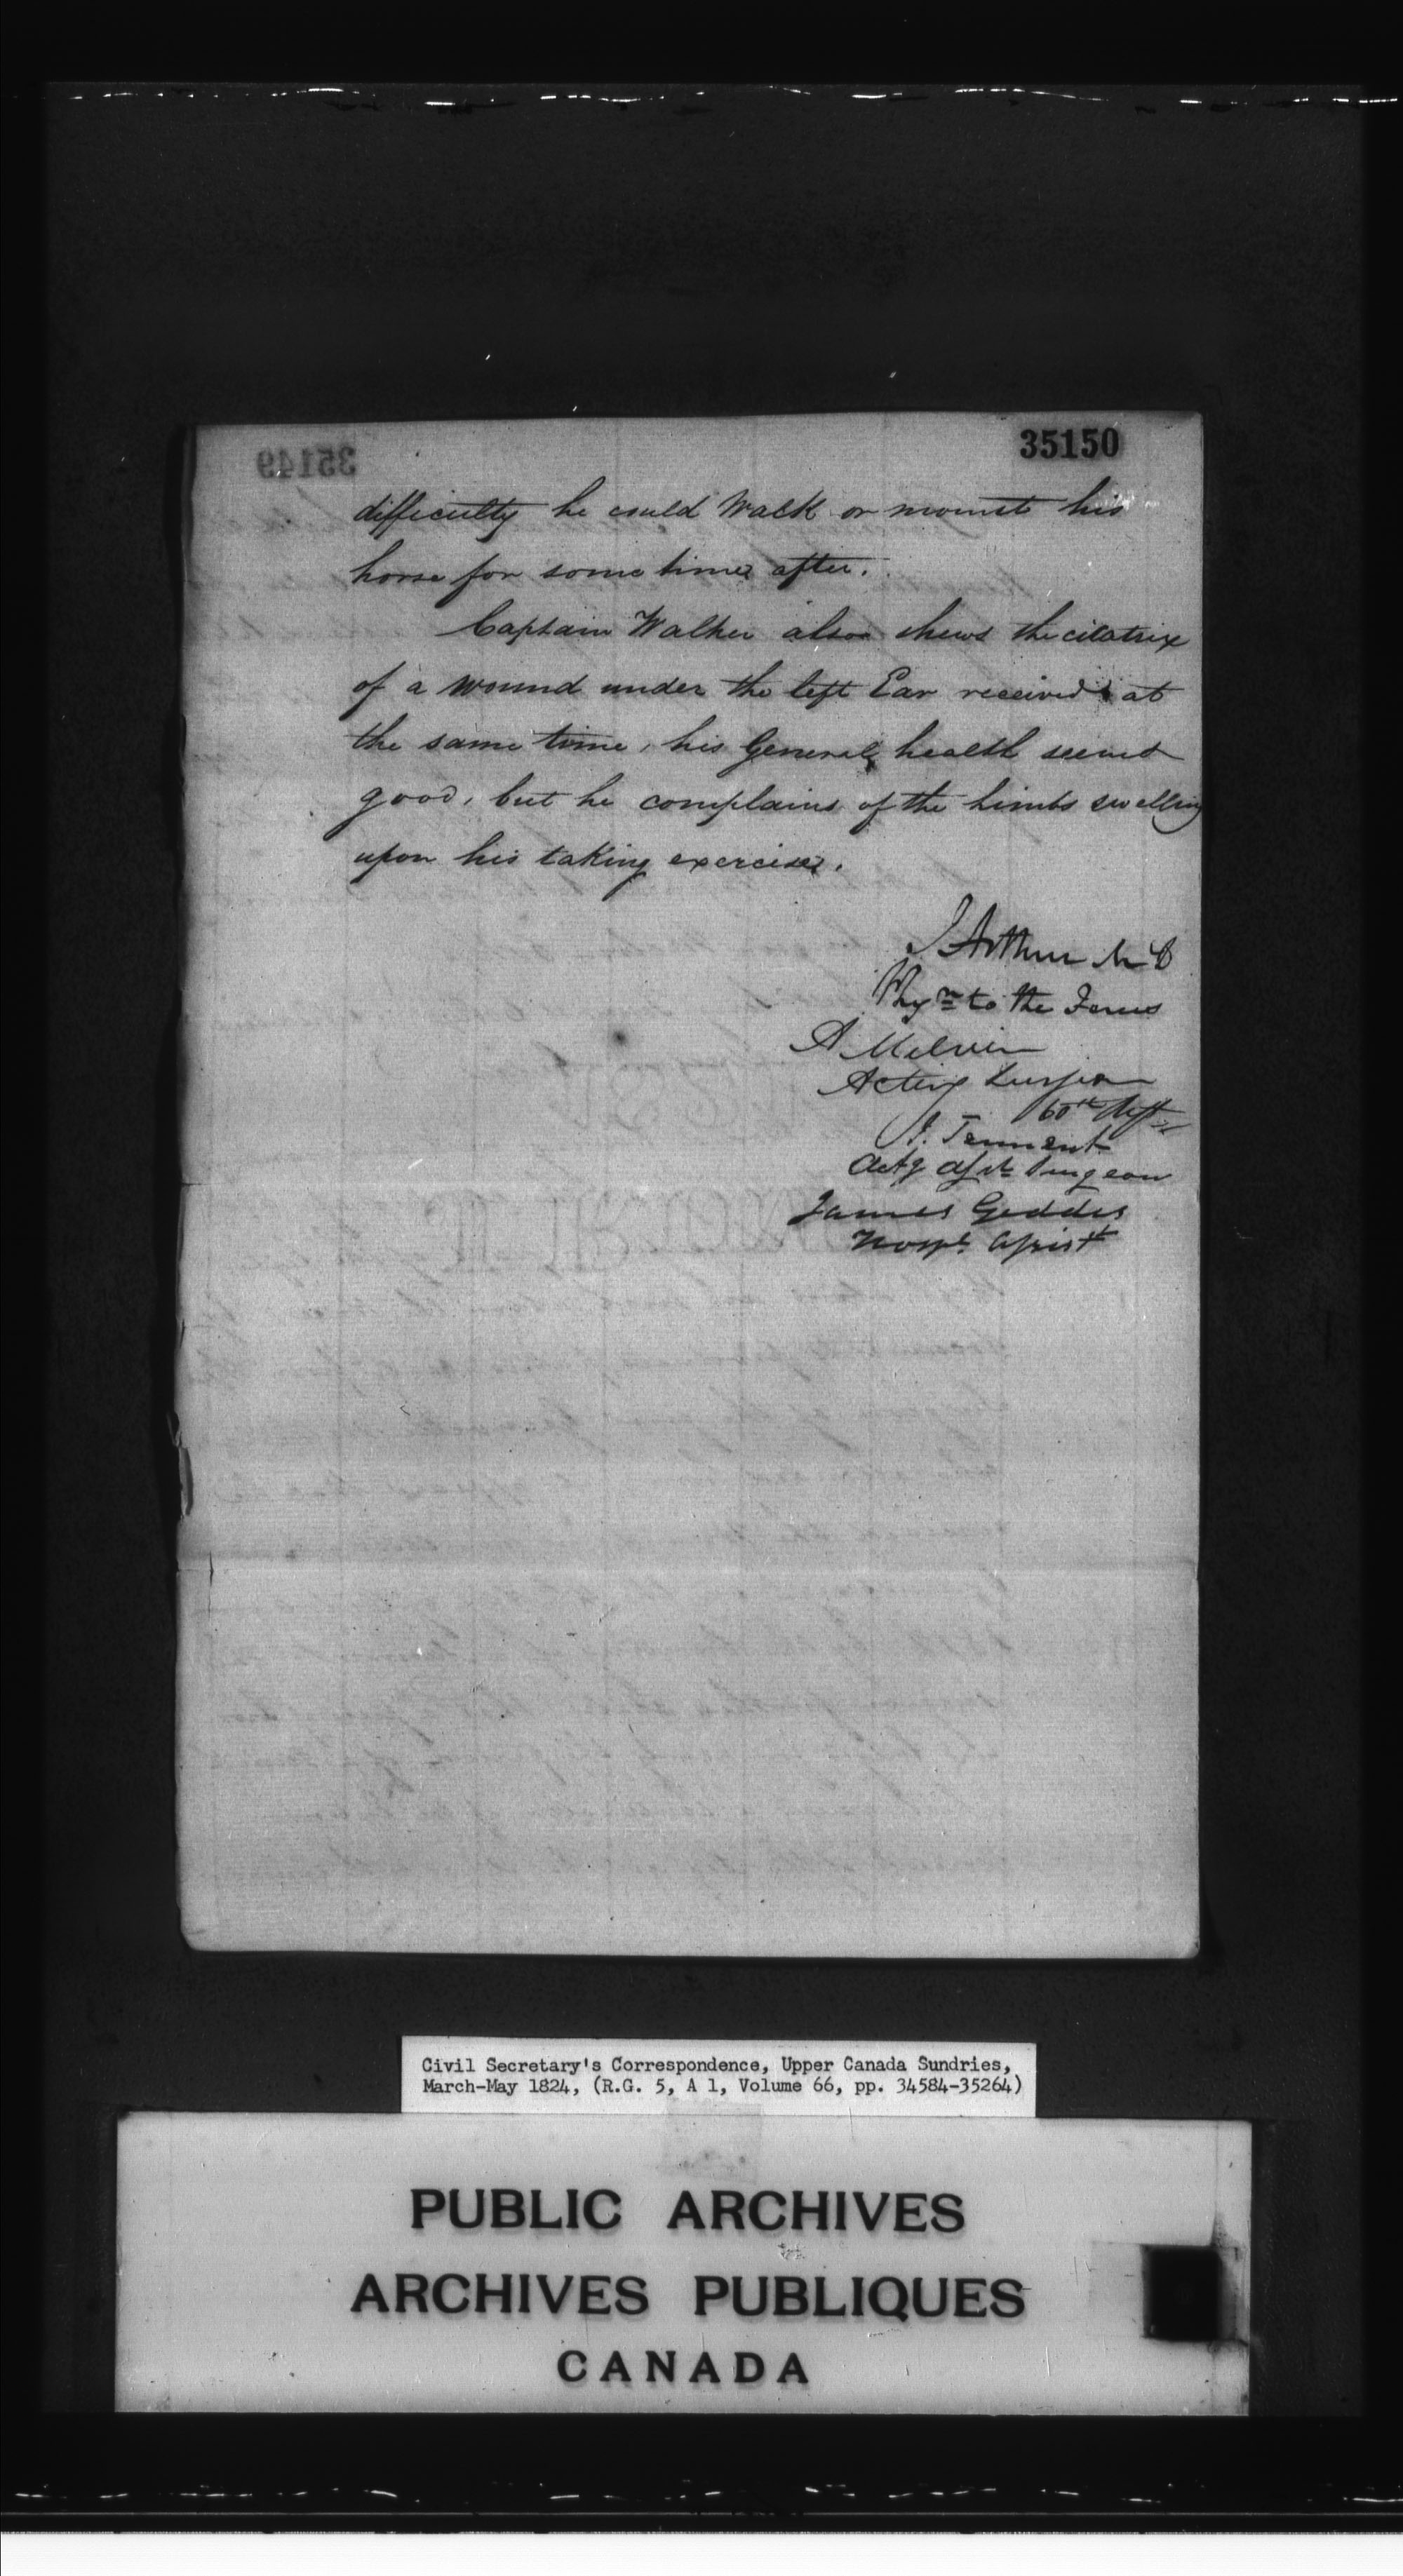 35150
difficulty he could Walk or mount his
horse for some time after.
Captain Walker also shews the cicatrix
of a wound under the left Ear received at
the same time, his General health seemed
good, but he complains of the limbs swelling
upon his taking exercise.
J Arthur M D
Phyn to the Forces
A Melvin
Acting Surgeon
60th Regt
J. Tennent
Actg Asst Surgeon
James Geddes
Hospl Assist
Civil Secretary's Correspondence, Upper Canada Sundries,
March-May 1824, (R.G. 5, A 1, Volume 66, pp. 34584-35264)
PUBLIC ARCHIVES
ARCHIVES PUBLIQUES
CANADA